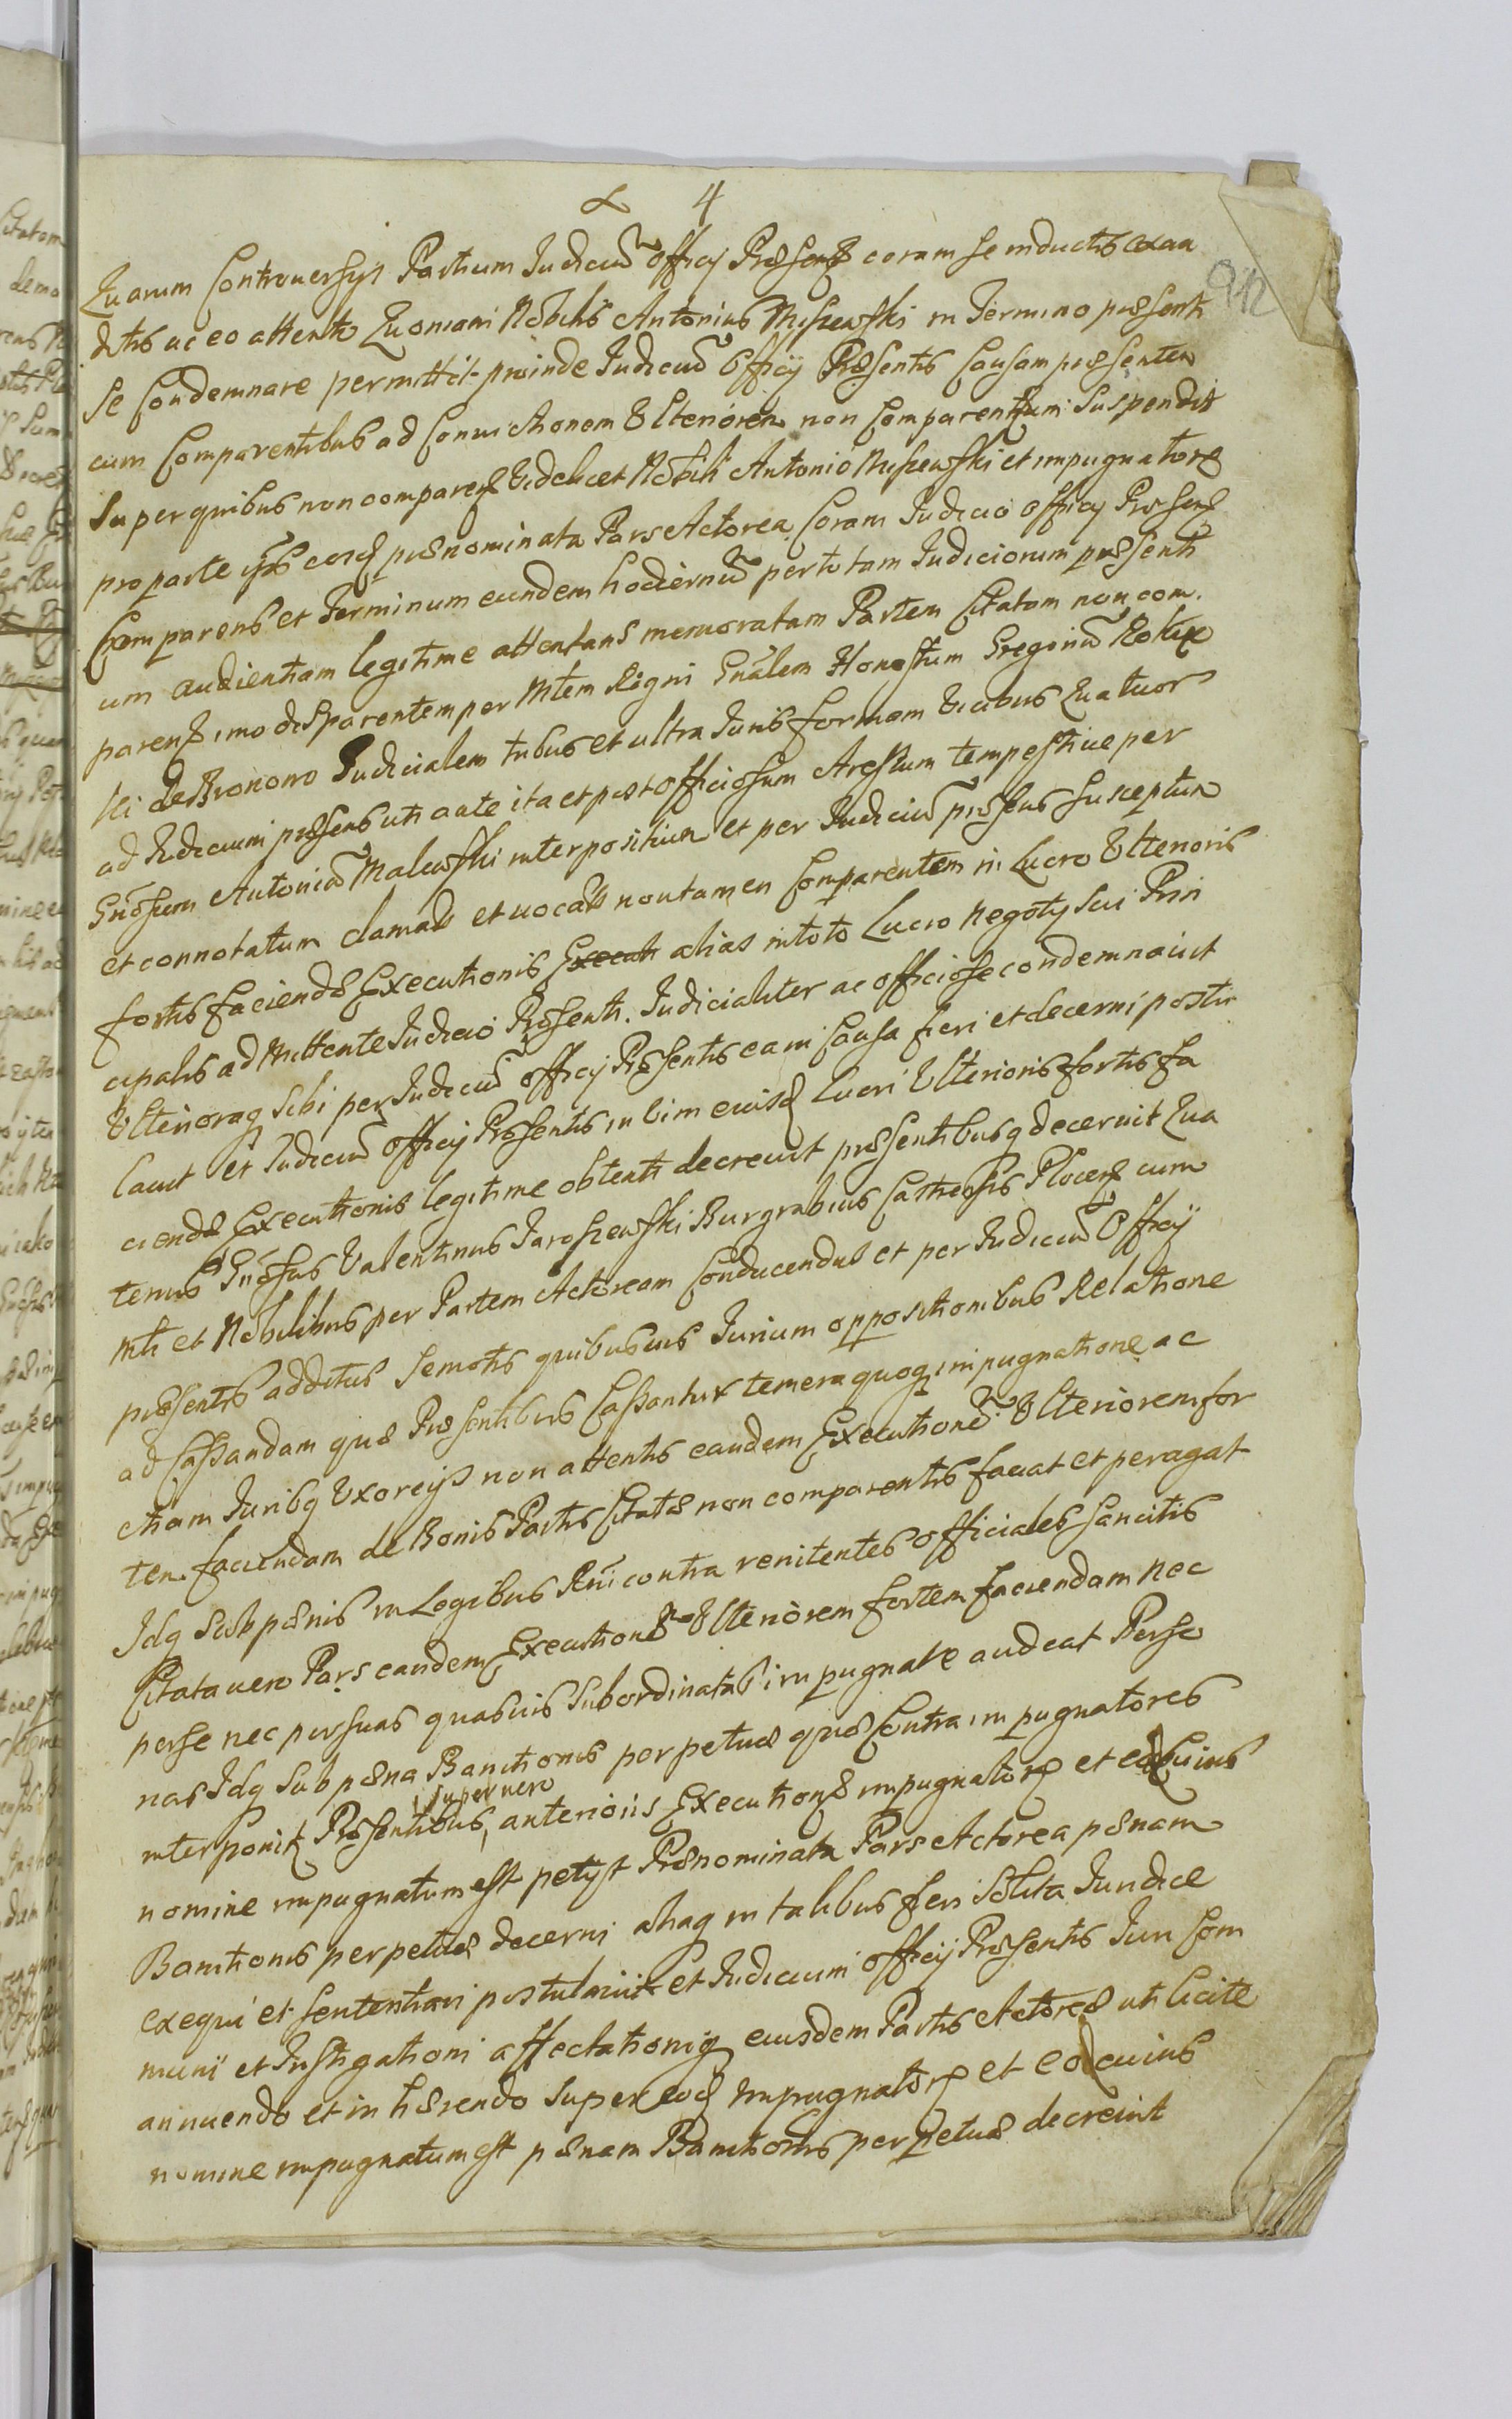 4
942
Quarum Controversijs Partium Judiciũ Officij Præsens coram se inductis exau
ditis ac eo attento Quoniam Nobilis Antonius Miszewski in Termino præsenti
se Condemnare permittit proinde Judiciũ Officij Præsentis Causam præsentem
cum Comparentibus ad Convictionem Ulteriorem non Comparentium Suspendit
Super quibus non comparen Videlicet Nobili Antonio Miszewski et impugnatore
pro parte ipsius eoq prænominata Pars Actorea Coram Judicio Officij Præsen
Comparens et Terminum eundem hodiernũ per totam Judiciorum præsenti
um audientiam legitime attentans memoratam Partem Citatam non com.
paren imo disparentem per Mtem Regni Gnalem Honestum Gregoriũ
ki de Bronowo Judicialem tribus et ultra Juris formam vicibus Quatuor
ad Judicium præsens uti ante ita et post Officiosum Arestum tempestive per
Gnosum Antoniũ Malewski interpositum et per Judiciũ præsens susceptum
et connotatum clamats et vocats non tamen Comparentem in Lucro Ulterioris
fortis faciendæ Executionis Executi alias in toto Lucro Negotij sui Prin
cipalis admittente Judicio Præsenti. Judicialiter ac officiose condemnavit
Ulterioraq sibi per Judiciũ Officij Præsentis eam Causa fieri et decerni postu
lavit et Judiciũ Officij Præsentis in vim eiusd Lucri Ulterioris fortis fa
ciendæ Executionis legitime obtenti decrevit præsentibusq decernit Qua
tenus Gnosus Valentinus Jaroszewski Burgrabius Castrensis Plocen cum
Mti et Nobilibus per Partem Actoream Conducendus et per Judiciũ Officij
præsentis additus Semotis quibusvis Jurium oppositionibus Relatione
ad Cassandam quæ Præsentibus Cassantur temera quoq impugnatione ac
etiam Juribq Uxoreijs non attentis eandem Executionẽ Ulteriorem for
tem. faciendam de Bonis Partis Citatæ non comparentis faciat et peragat
Idq Sub pænis in Legibus Rni contra renitentes Officiales Sancitis
Citata vero Pars eandem Executionẽ Ulteriorem fortem faciendam nec
perse nec per suas quasvis Subordinatas impugnate audeat Perso
nas Idq Sub pæna Bannitionis perpetuæ quæ Contra impugnatores
super vero
interponit Præsentibus, anterioris Executionẽ impugnatore et eo cuius
nomine impugnatum est petijt Prænominata Pars Actorea pænam
Bannitionis perpetuæ decerni aliaq in talibus fieri Solita Juridice
exequi et sententiari postulavit et Judicium Officij Præsentis Juri Com
muni et Instigationi affectationiq eiusdem Partis Actoreæ uti licite
annuendo et inhærendo Super eoq impugnatore et eo cuius
nomine impugnatum est pænam Bannitionis perpetuæ decrevit